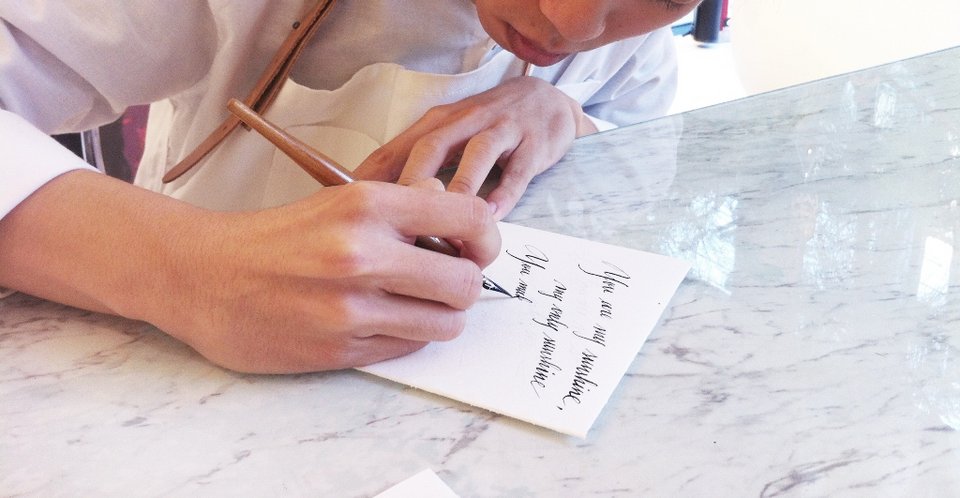 You are my sunshine,
my only sunshine
You mak